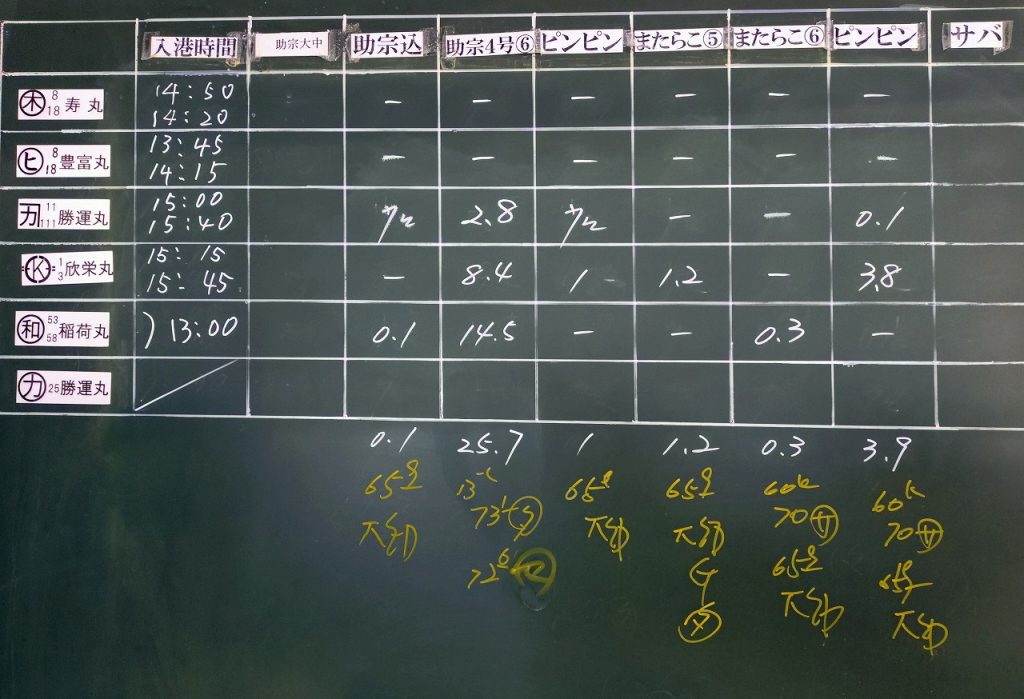 入港時間 助宗大中 助宗込 助宗4号⑥ ピンピン またらこ⑤ またらこ⑥ ピンピン サバ
㊍ 8 18 寿丸 14:50 14:20 - - - - - -
ヒ 8 18 豊富丸 13:45 14:15 - - - - - -
11 111 勝運丸 15:00 15:40 2.8 - - 0.1
K 1 3 欣栄丸 15:15 15:45 - 8.4 1 1.2 - 3.8
和 53 58 稲荷丸 )13:00 0.1 14.5 - - 0.3 -
カ 25 勝運丸
0.1 25.7 1 1.2 0.3 3.9
65 13 65 65 60k 60k
73 70 70
72 65 65